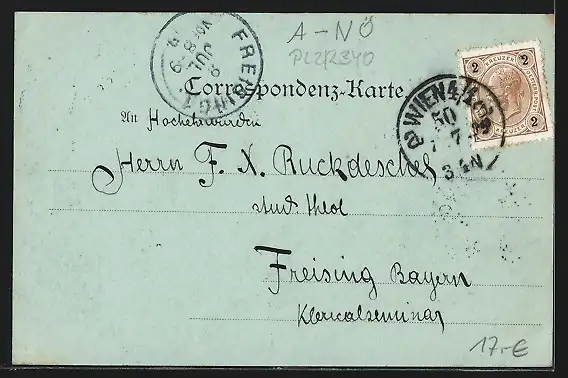 A-NÖ
PLZ2340
FREISING 1.
8
JUL
Correspondenz-Karte.
An Hochehrwürden
Herrn F. X. Ruckdeschel
stud. theol
Freising Bayern
Klericalseminar
WIEN 4/1
50
7
3-4N
2 KREUZER 2
KREUZER 2
17.-€